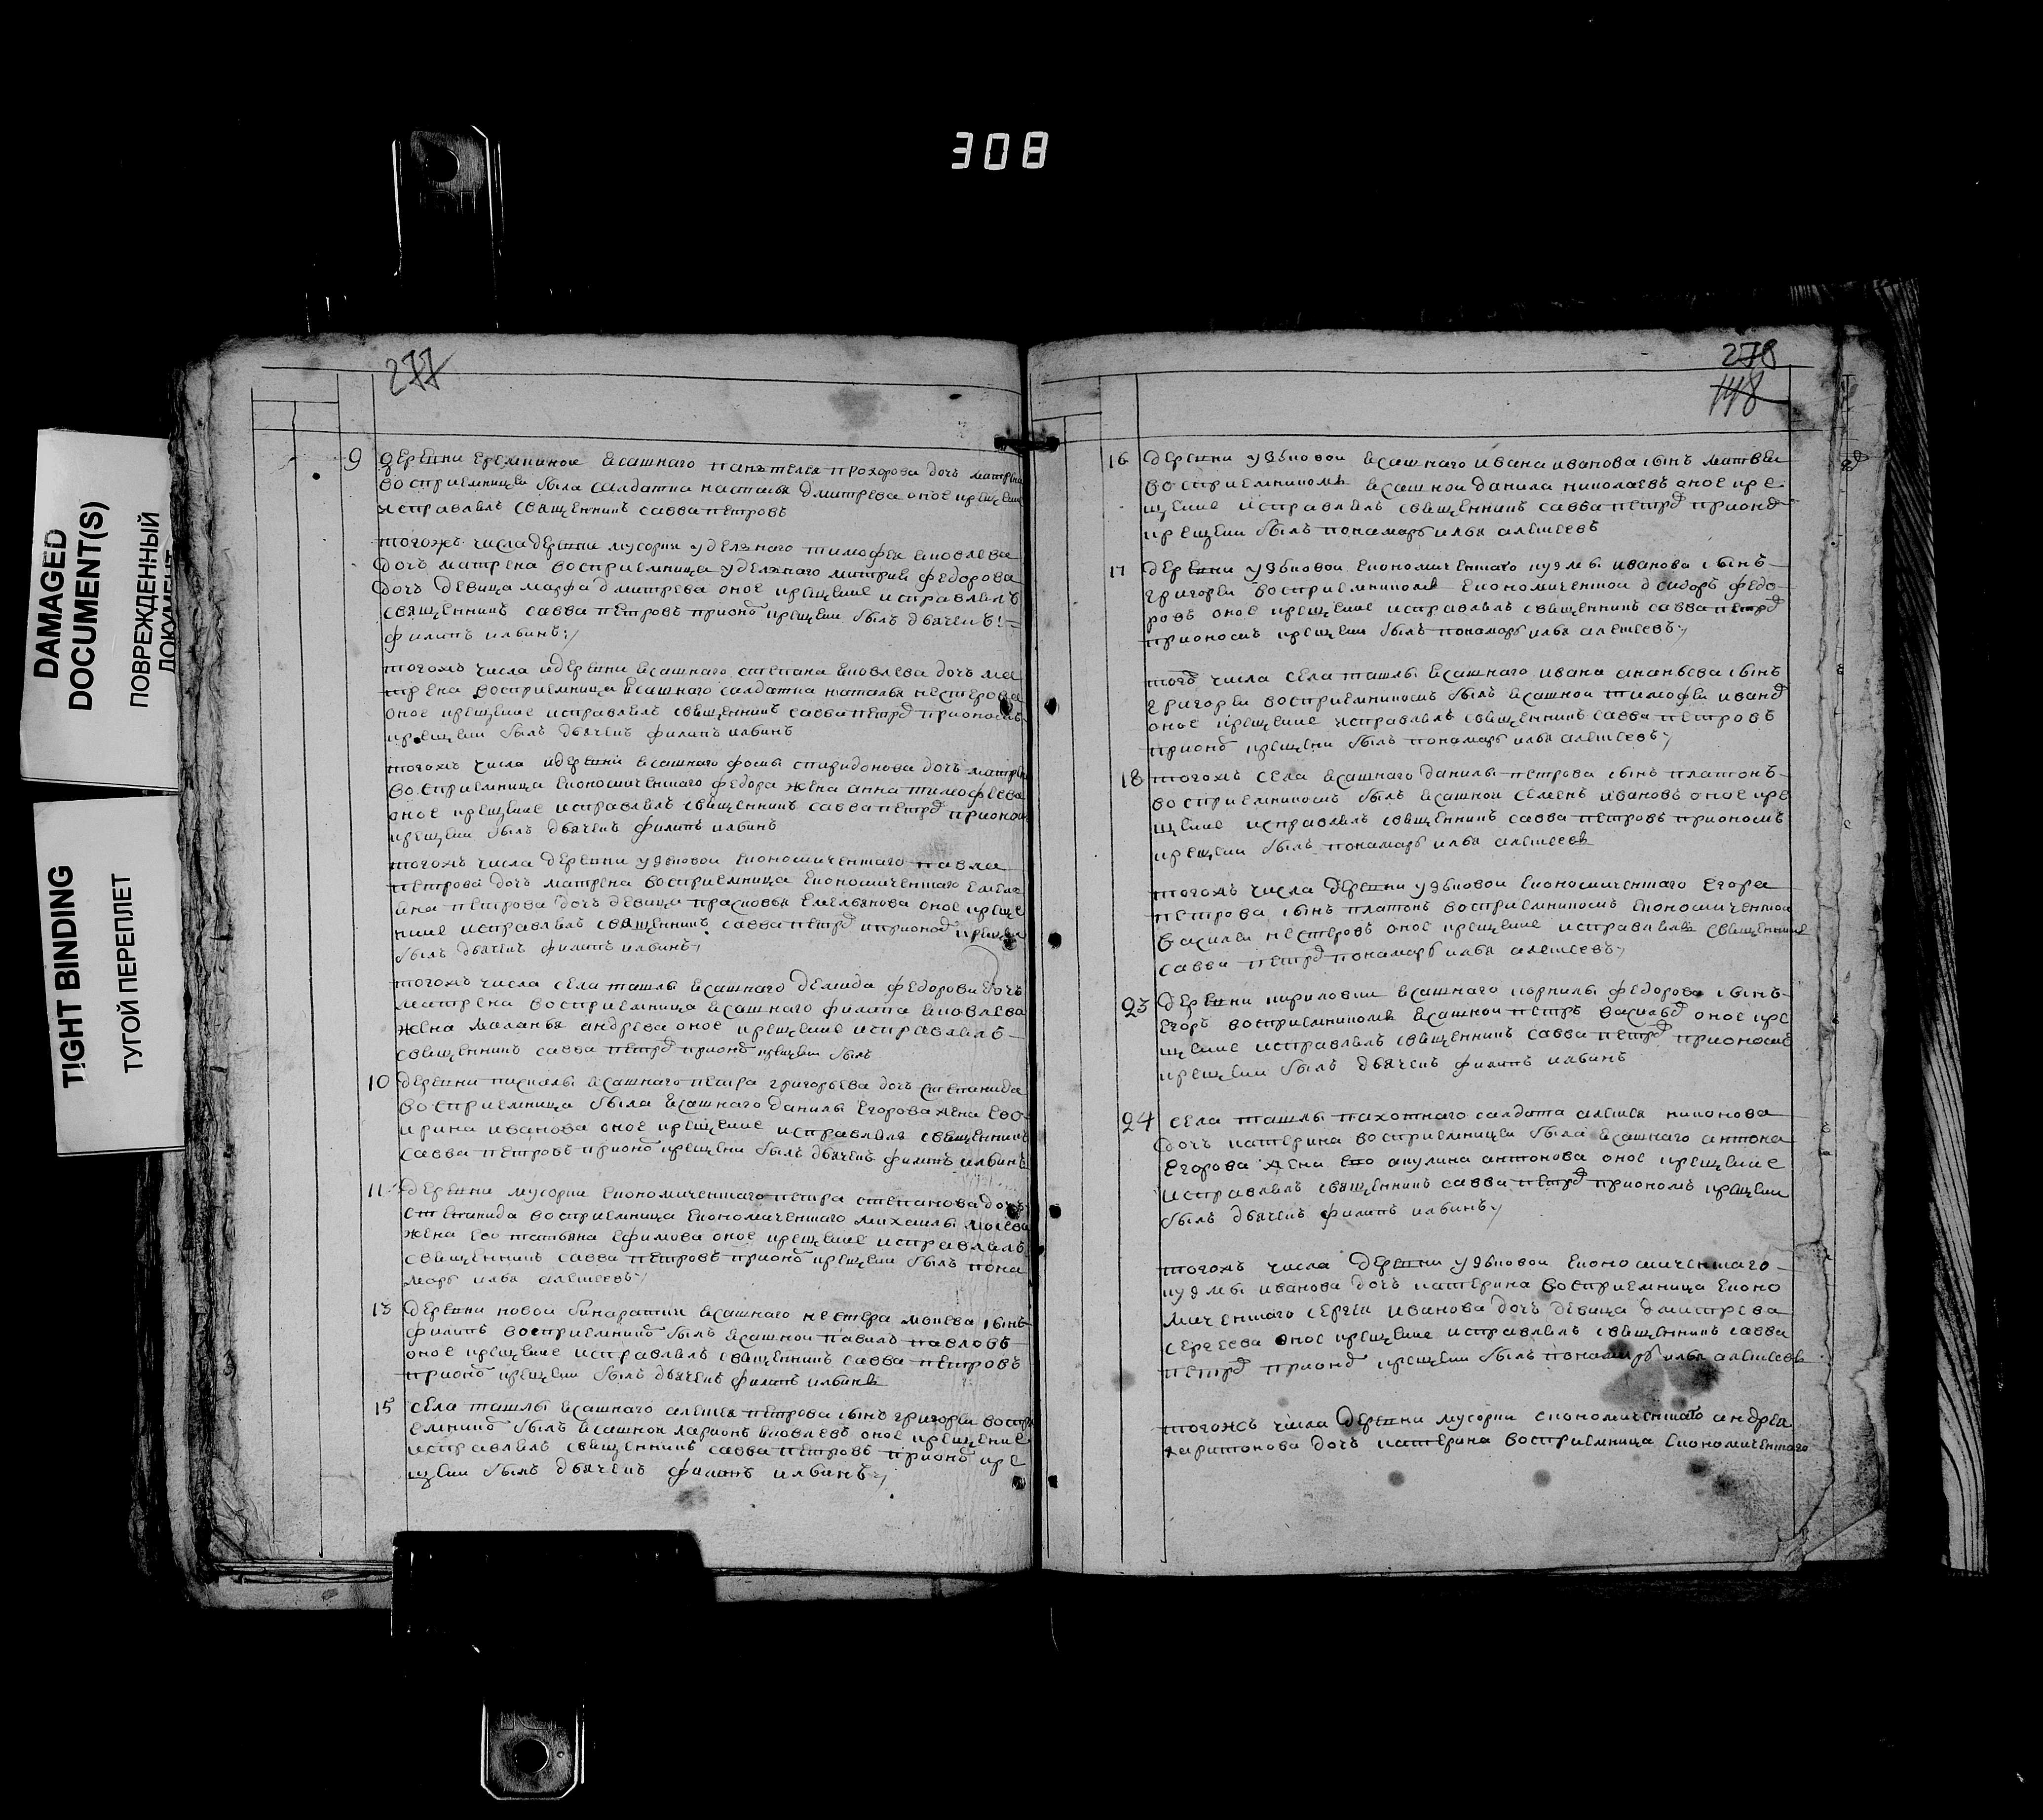 308
DAMAGED
DOCUMENT(S)
ПОВРЕЖДЕННЫЙ
ДОКУМЕНТ
TIGHT BINDING
ТУГОЙ ПЕРЕПЛЕТ
277
9 деревни ясашнаго пантелея прохорова дочь матрена
восприемницей была салдатка наталья дмитрева оное крещение
исправлялъ священникъ савва петровъ
тогожъ числа деревни мусорки удельнаго тимофея яковлева
дочь матрена восприемница удельнаго митрия федорова
дочь девица марфа дмитрева оное крещение исправлялъ
священникъ савва петровъ прионо крещени былъ дьячекъ
филипъ ильинъ
тогожъ числа идеревни ясашнаго степана яковлева дочь ма
трена восприемница ясашнаго салдатка наталья нестерова
оное крещение исправлялъ священникъ савва петро прионосмъ
крещени былъ дьячекъ филипъ ильинъ
тогожъ числа идеревни ясашнаго фоки спиридонова дочь матрена
восприемница економическаго федора жена анна тимофеева
оное крещение исправлялъ священникъ савва петро прионом
крещени былъ дьячекъ филипъ ильинъ
тогожъ числа деревни узьковои економическаго павла
петрова дочь матрена восприемница економическаго емель
яна петрова дочь девица прасковья емельянова оное креще
ние исправлялъ священникъ савва петро иприоно крещени
былъ дьячекъ филипъ ильинъ
тогожъ числа села ташлы ясашнаго демида федорова дочь
матрена восприемница ясашнаго филипа яковлева
жена маланья андрева оное крещение исправлялъ
священникъ савва петро прионо крещени былъ
10 деревни пискалы ясашнаго петра григорьева дочь степанида
восприемница была ясашнаго данилы егорова жена ево
ирина иванова оное крещение исправлялъ священникъ
савва петровъ прионо крещени былъ дьячекъ филипъ ильинъ
11 деревни мусорки економическаго петра степанова дочь
степанида восприемница економическаго михаилы
жена ево татьяна ефимова оное крещение исправлялъ
священникъ савва петровъ прионо крещени былъ пона
марь илья алексеевъ
13 деревни новои бинаратки ясашнаго нестера сынъ
филипъ восприемнико былъ ясашнои павилъ павловъ
оное крещение исправлялъ священникъ савва петровъ
прионо крещени былъ дьячекъ филипъ ильинъ
15 села ташлы ясашнаго алексея петрова сынъ григореи воспри
емнико былъ ясашнои ларионъ яковлевъ оное крещение
исправлялъ священникъ савва петровъ прионо кре
щени былъ дьячекъ филипъ ильинъ
278
148
16 деревни узьковои ясашнаго ивана иванова сынъ матвеи
восприемникомъ ясашнои данила николаевъ оное кре
щение исправлялъ священникъ савва петро прионо
крещени былъ понамарь илья алексеевъ
17 деревни узьковои економическаго кузмы иванова сынъ
григореи восприемникомъ економическои сидоръ федо
ровъ оное крещение исправлялъ священникъ савва петро
прионосмъ крещени былъ понамарь илья алексеевъ
того числа села ташлы ясашнаго ивана ананьева сынъ
григореи восприемникомъ былъ ясашнои тимофеи ивано
оное крещение исправлялъ священникъ савва петровъ
прионо крещени былъ понамарь илья алексеевъ
18 тогожъ села ясашнаго данилы петрова сынъ платонъ
восприемникомъ былъ ясашнои семенъ ивановъ оное кре
щение исправлялъ священникъ савва петровъ прионосмъ
крещени былъ понамарь илья алексеевъ
тогожъ числа деревни узьковои економическаго егора
петрова сынъ платонъ восприемникомъ економическои
василеи нестеровъ оное крещение исправлялъ священникъ
савва петро понамарь илья алексеевъ
23 деревни кириловки ясашнаго корнилы федорова сынъ
егоръ восприемникомъ ясашнои петръ василье оное кре
щение исправлялъ священникъ савва петро прионосмъ
крещени былъ дьячекъ филипъ ильинъ
24 села ташлы пахотнаго салдата алексея никонова
дочь катерина восприемницеи была ясашнаго антона
егорова жена ево акулина антонова оное крещение
исправлялъ священникъ савва петро приономъ крещени
былъ дьячекъ филипъ ильинъ
тогожъ числа деревни узьковои економическаго
кузмы иванова дочь катерина восприемница еконо
мическаго сергея иванова дочь девица дмитрева
сергеева оное крещение исправлялъ священникъ савва
петро прионо крещени былъ понамарь илья алексеевъ
тогожъ числа деревни мусорки економическаго андрея
харитонова дочь катерина восприемница економическаго